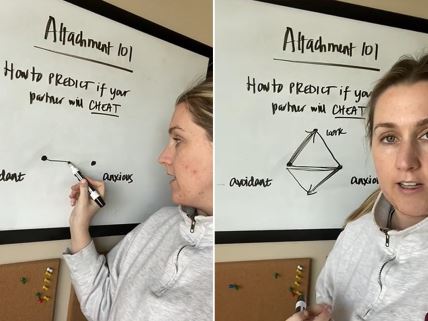 Attachment 101
How to PREDICT if your
partner will CHEAT
dant
anxious
Attachment 101
How to PREDICT if your
partner will CHEAT
work
avoidant
anxiou